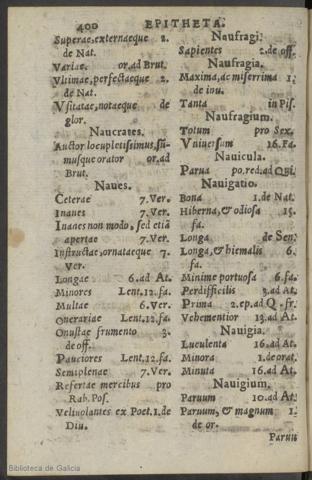 400 EPITHETA.
Superae, externaeque 2.
de Nat.
Variae. or. ad Brut.
Vltimae, perfectaeque 2.
de Nat.
Vsitatae, notaeque de
glor.
Naucrates.
Auctor locupletissimus, sũ-
musque orator or. ad
Brut.
Naues.
Ceterae 7. Ver.
Inanes 7. Ver.
Inanes non modo, sed etiã
apertae 7. Ver.
Instructae, ornataeque 7.
Ver.
Longae 6. ad At.
Minores Lent. 12. fa.
Multae 6. Ver.
Onerariae Lent. 12. fa.
Onustae frumento 3.
de off.
Pauciores Lent. 12. fa.
Semiplenae 7. Ver.
Refertae mercibus pro
Rab. Pos.
Veliuolantes ex Poet. 1. de
Diu.
Naufragi.
Sapientes 2. de off.
Naufragia.
Maxima, ac miserrima 1.
de inu.
Tanta in Pis.
Naufragium.
Totum pro Sex.
Vniuersum 16. Fa.
Nauicula.
Parua po. red. ad Qui.
Nauigatio.
Bona 1. de Nat.
Hiberna, & odiosa 15.
fa.
Longa de Sen.
Longa, & hiemalis 6.
fa.
Minime portuosa 6. fa.
Perdifficilis 3. ad At.
Prima 2. ep. ad Q. fr.
Vehementior 13. ad At.
Nauigia.
Luculenta 16. ad At.
Minora 1. de orat.
Minuta 16. ad At.
Nauigium.
Paruum 10. ad At.
Paruum, & magnum 1.
de or.
Paruu
Biblioteca de Galicia